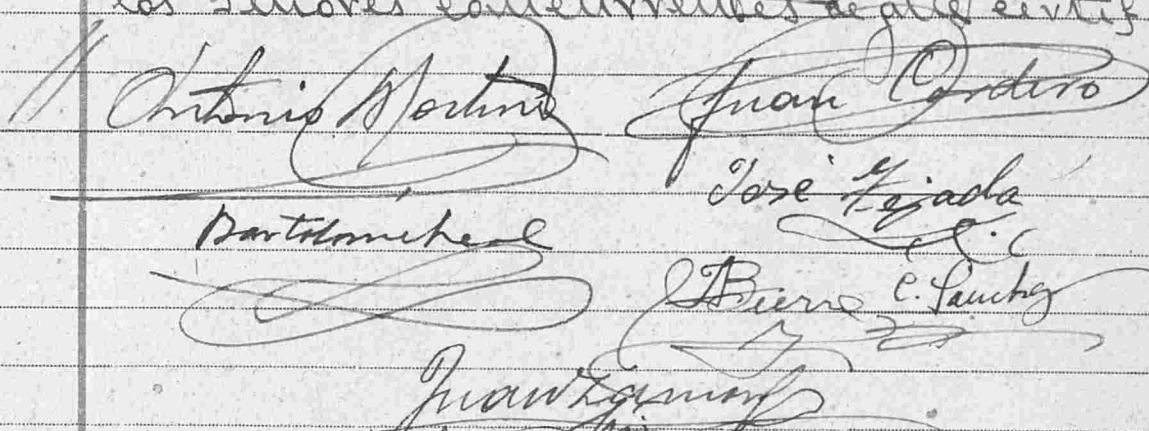 los Señores concurrentes de que certif
Antonio Martine Juan Cordero
José Tejada
Bartolome
C. Sanchez
Juan